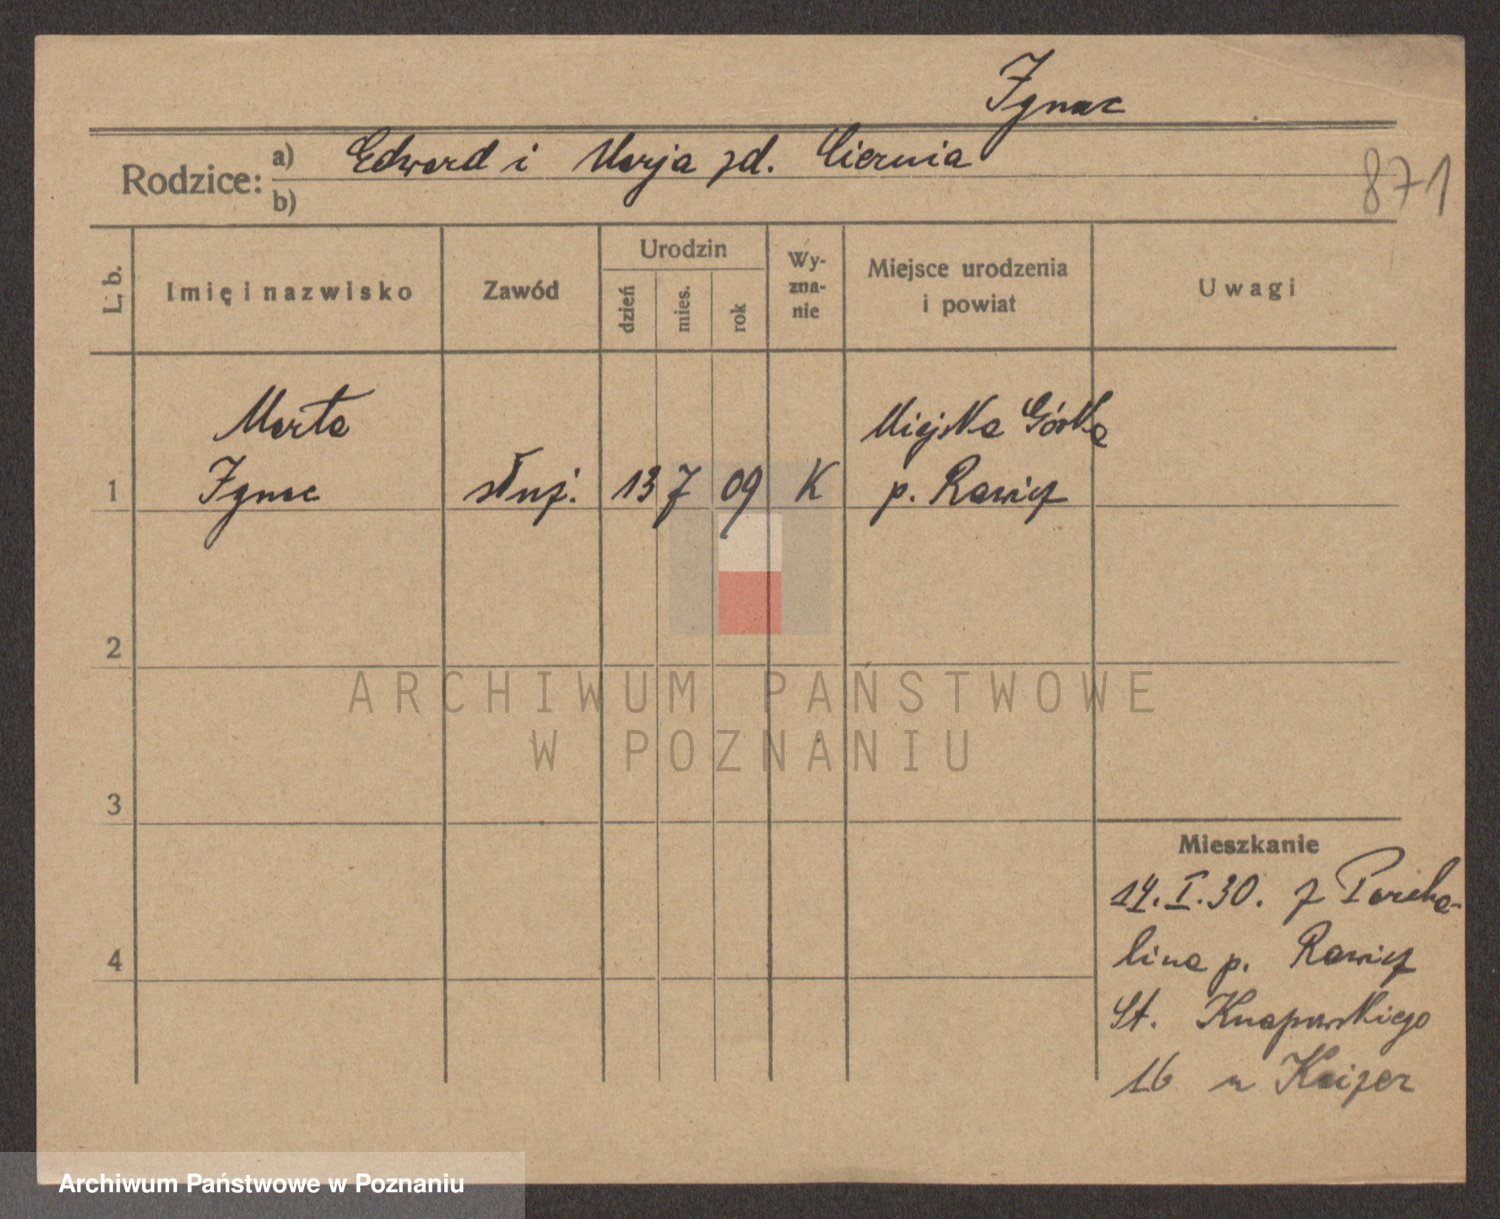 Ignac
Rodzice: a) Edward i Marja zd. Ciernia
b)
871
L. b.
Imię i nazwisko
Zawód
Urodzin
dzień
mies.
rok
Wy-
zna-
nie
Miejsce urodzenia
i powiat
Uwagi
Marta
Miejska Górka
1 Ignac służ. 13 7 09 K p. Rawicz
2
ARCHIWUM PAŃSTWOWE
W POZNANIU
3
Mieszkanie
14.I.30. z Parcha-
4
lina p. Rawicz
St. Knapowskiego
16 u Kaizer
Archiwum Państwowe w Poznaniu